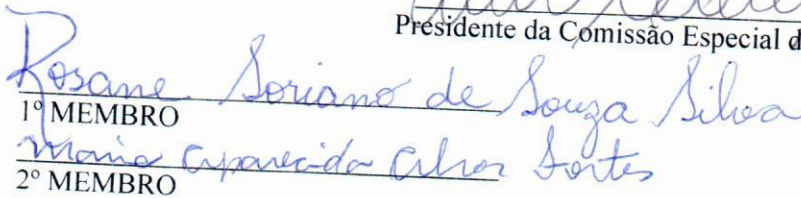 Presidente da Comissão Especial d
Rosane Soriano de Souza Silva
1º MEMBRO
Maria Aparecida Fortes
2º MEMBRO